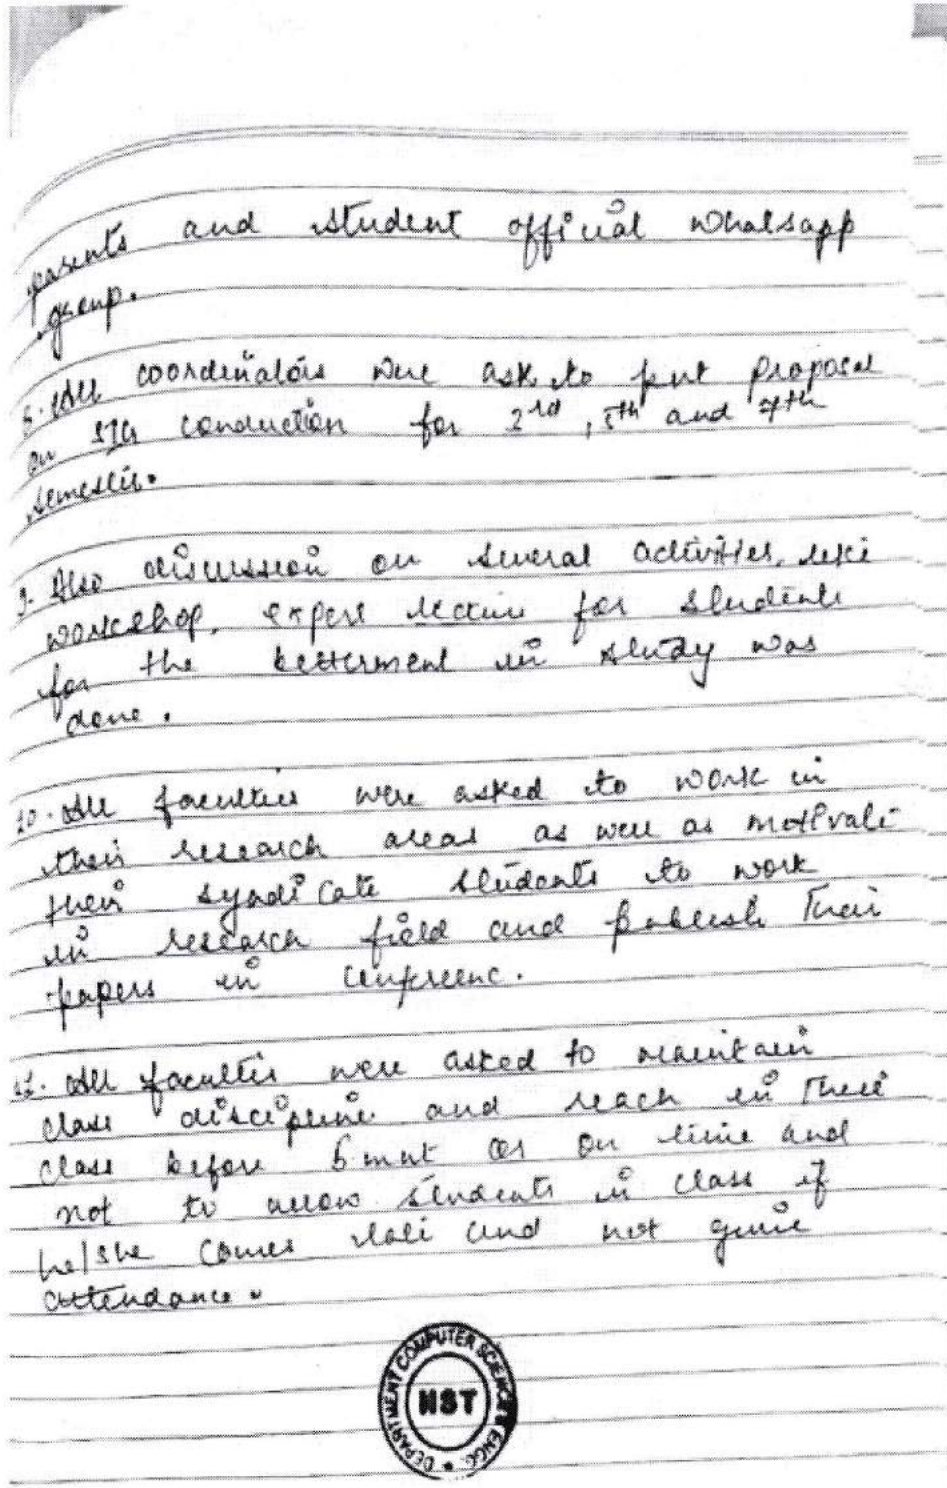 parents and student official Whatsapp
group.
8. All coordinators were ask to put proposal
on conduction for 3rd, 5th and 7th
semester.
9. Also discussion on several activities, like
workshop, expert lecture for students
for the betterment in study was
done.
10. All faculties were asked to work in
their research areas as well as motivate
their syndicate students to work
in research field and publish their
papers in conference.
11. All faculties were asked to maintain
class discipline and reach in their
class before 5 mnt or on time and
not to allow students in class if
he/she comes late and not give
attendance.
DEPARTMENT COMPUTER SCIENCE & ENGG.